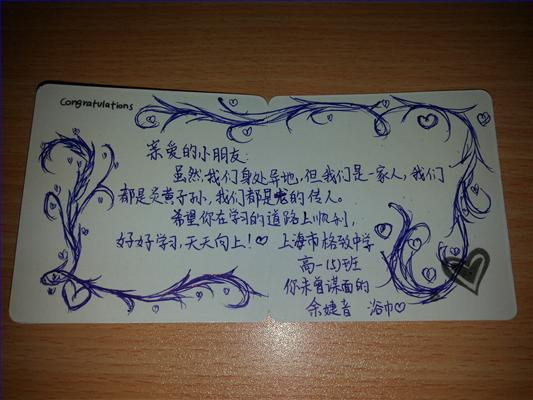 Congratulations
亲爱的小朋友:
虽然我们身处异地,但我们是一家人,我们
都是炎黄子孙,我们都是龙的传人。
希望你在学习的道路上顺利,
好好学习,天天向上!♡ 上海市格致中学
高一(5)班
你未曾谋面的
余婕音 浴巾♡